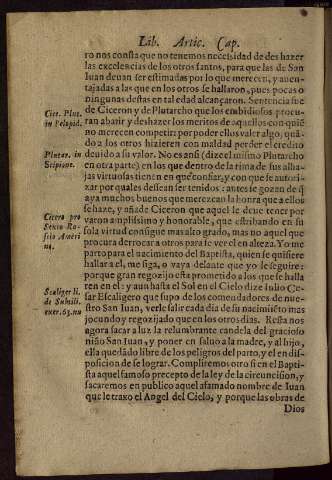 Lib. Artic. Cap.
ro nos consta que no tenemos necessidad de deshazer
las excelencias de los otros santos, para que las de San
Iuan deuan ser estimadas por lo que merecen, y auen-
tajadas a las que en los otros se hallaron, pues pocas o
ningunas destas en tal edad alcançaron. Sentencia fue
Cice. Plut.
in Pelopid.
de Ciceron y de Plutarcho que los embidiosos procu-
ran abatir y deshazer los meritos de aquellos con quiē
no merecen competir: por poder ellos valer algo, quā-
do a los otros hizieren con maldad perder el credito
Plutar. in
Scipione.
deuido a su valor. No es ansi (dize el mismo Plutarcho
en otra parte) en los que dentro de si rimas de sus alha-
jas virtuosas tienen en que confiar, y con que se autori-
zar por quales dessean ser tenidos: antes se gozan de q̄
aya muchos buenos que merezcan la honra que a ellos
Cicero pro
Sexto Ros-
cio Ameri
no,
se haze, y añade Ciceron que aquel se deue tener por
varon amplissimo y honorable, que estribando en su
sola virtud consigue mas alto grado, mas no aquel que
procura derrocar a otros para se ver el en alteza. Yo me
parto para el nacimiento del Baptista, quien se quisiere
hallar a el, me siga, o vaya delante que yo le seguire:
porque gran regozijo esta prometido a los que se halla
Scaliger li.
de Subtili.
exer. 63. nu
ren en el: y aun hasta el Sol en el Cielo dize Iulio Ce-
sar Escaligero que supo de los comendadores de nue-
stro San Iuan, verle salir cada dia de su nacimiēto mas
jocundo y regozijado que en los otros dias. Resta nos
agora sacar a luz la relumbrante candela del gracioso
niño San Iuan, y poner en saluo a la madre, y al hijo,
ella quedādo libre de los peligros del parto, y el en dis-
posicion de se lograr. Cumpliremos otro si en el Bapti-
sta aquel famoso precepto de la ley de la circuncision, y
sacaremos en publico aquel afamado nombre de Iuan
que le traxo el Angel del Cielo, y porque las obras de
Dios